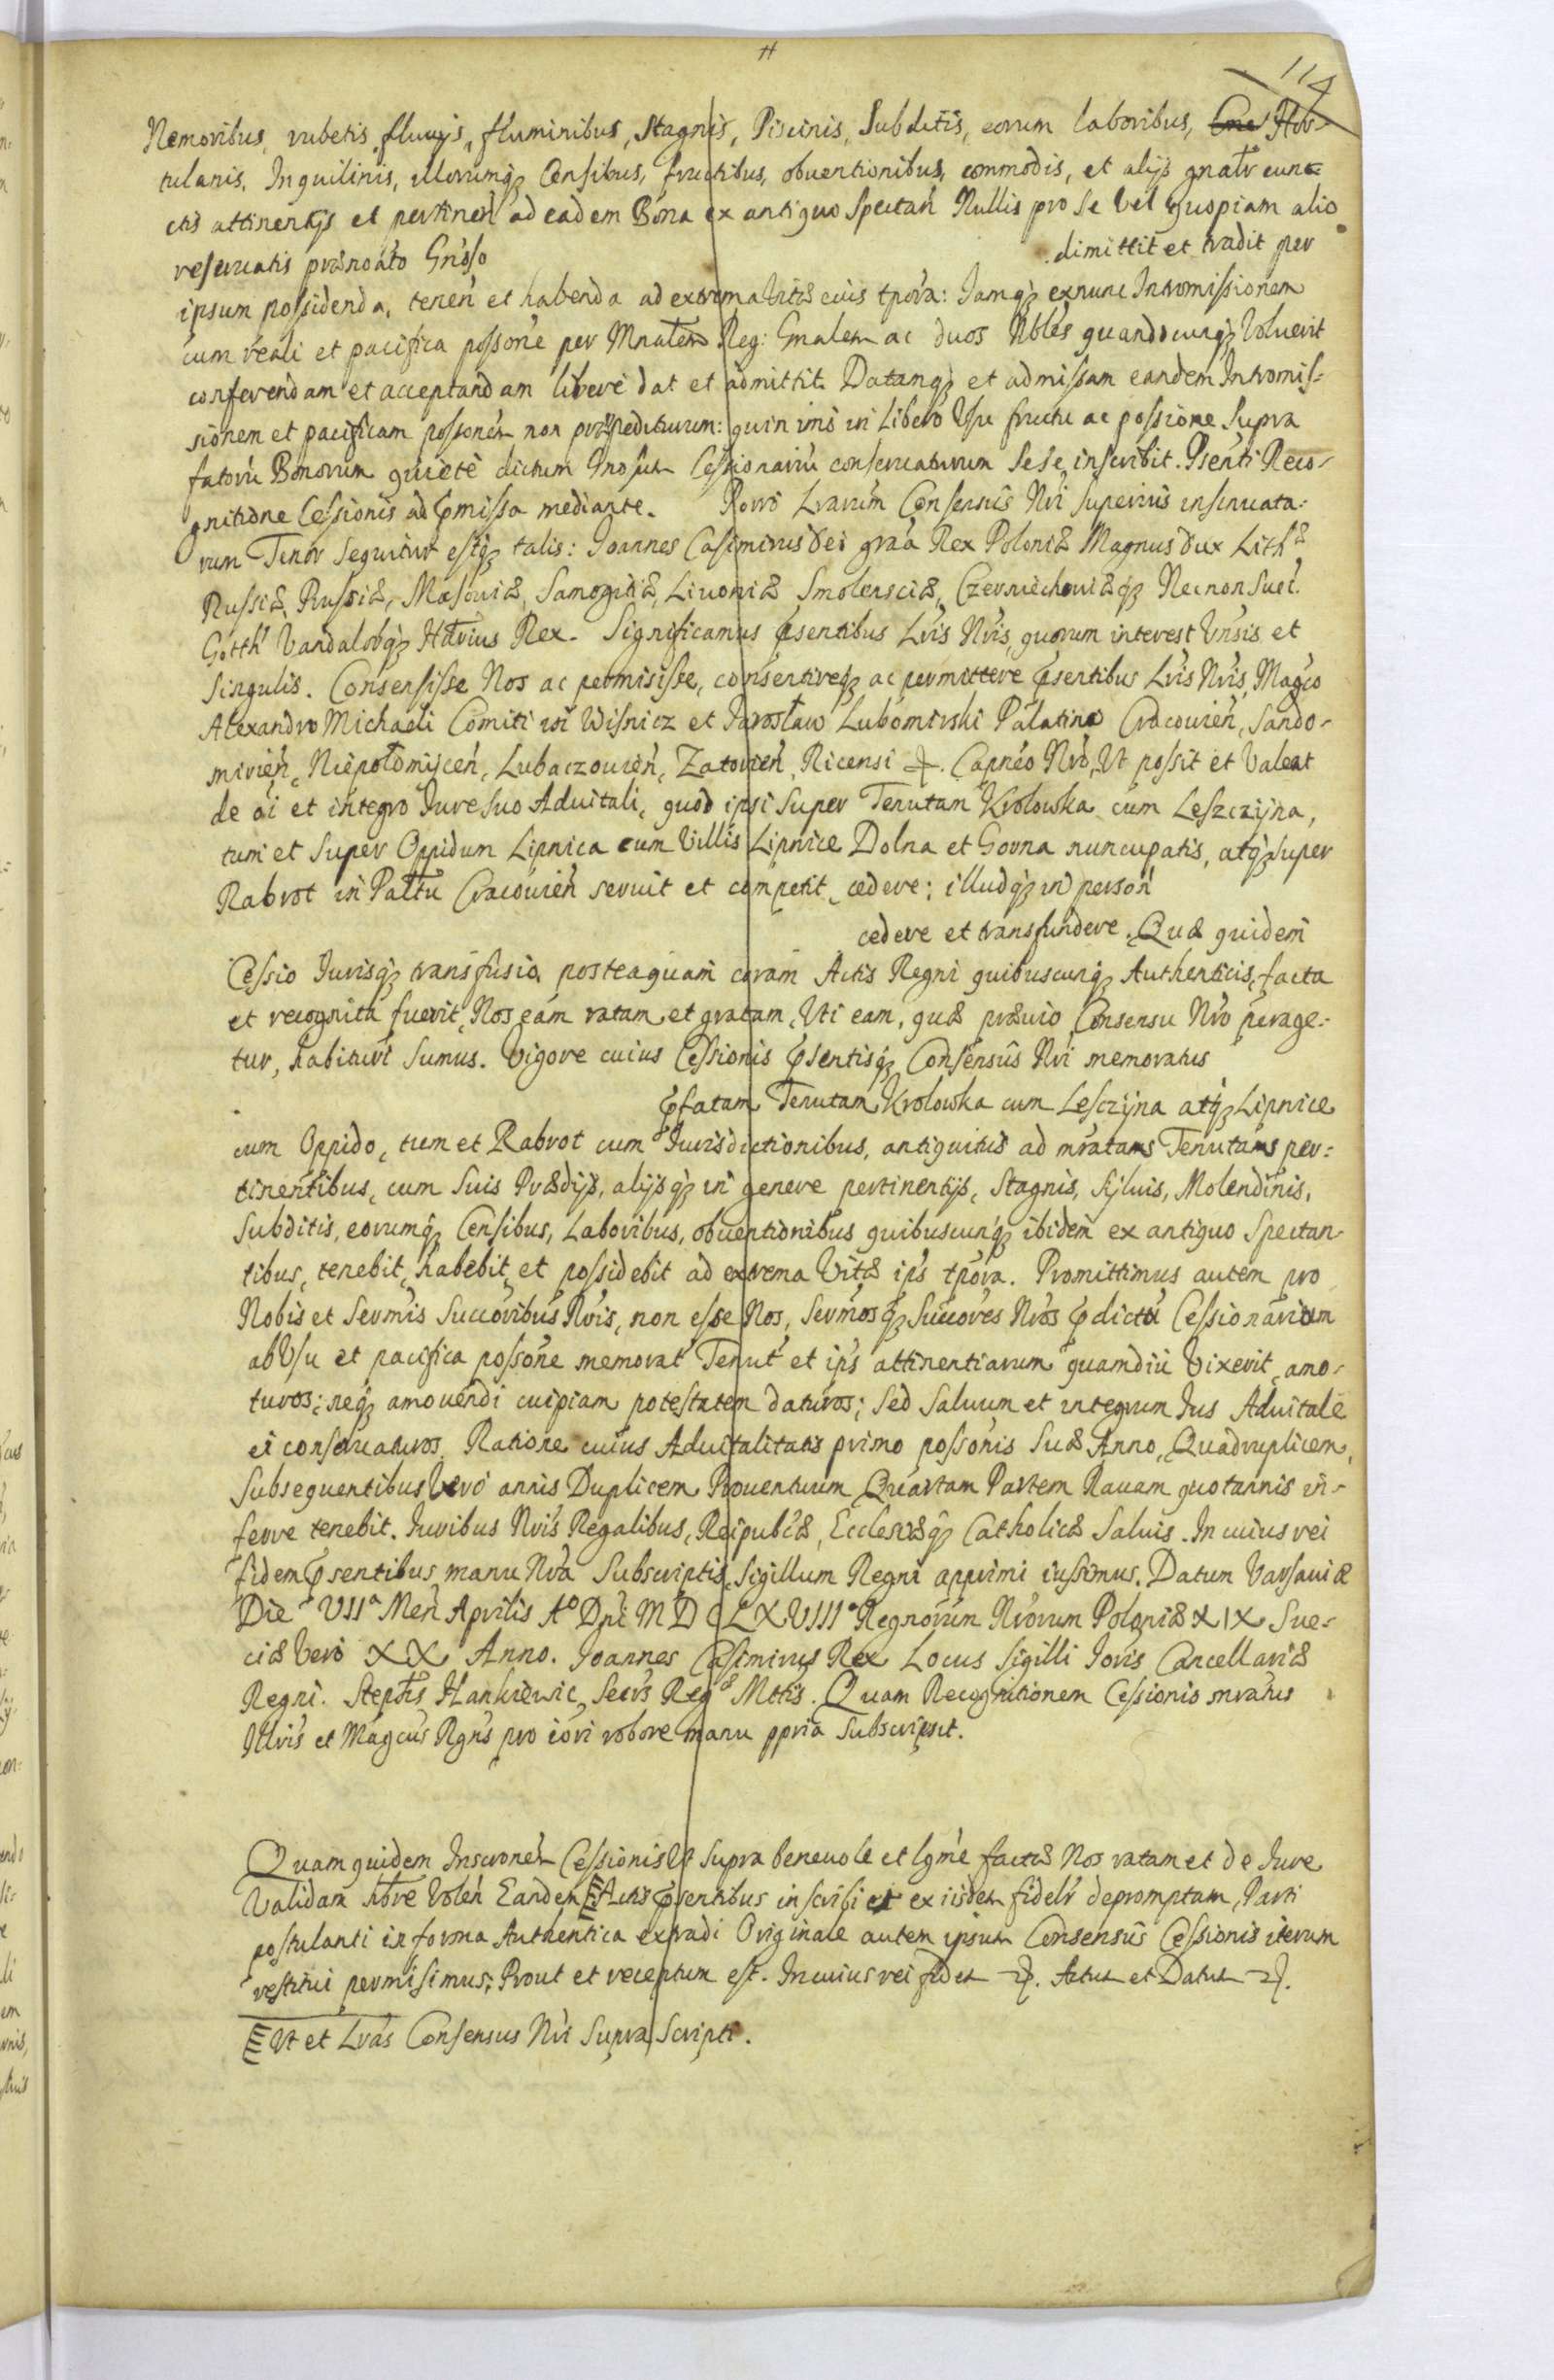 H
114
Nemoribus, rubetis, fluuijs, fluminibus, Stagnis, Piscinis, Subditis, eorum laboribus, Hor-
tulanis, Inquilinis, illorumq; Censibus, fructibus, obuentionibus, commodis, et alijs gnalr cun-
ctis attinentijs et pertinen ad eadem Bona ex antiquo Spectan Nullis pro se vel quopiam alio
reseruatis prænoato Gnoso dimittit et tradit per
ipsum possidenda, tenen et habenda ad extrema Vitæ eius tpora: Iamq; exnunc Intromissionem
cum reali et pacifica possone per Mnalem Reg: Gnalem ac duos Nbles quandocunq; Voluerit
conferendam et acceptandam liberè dat et admittit. Datamq; et admissam eandem Intromis-
sionem et pacificam possonem non præpediturum: quin imò in libero Vsu fructu ac possione Supra
fatoru Bonorum quietè dictum Gnosum Cessionariu conseruaturum Sese inscribit. Psenti Reco-
gnitione Cessionis ad pmissa mediante. Porrò Lrarum Consensus Nri superius insinuata-
rum Tenor Sequitur estq; talis: Joannes Casimirus Dei graa Rex Poloniæ Magnus Dux Lithæ
Russiæ, Prussiæ, Masouiæ, Samogitiæ, Liuoniæ Smolensciæ, Czerniechouiæq; Necnon Suec.
Gotth Vandalorq; Htrius Rex. Significamus psentibus Lris Nris, quorum interest Vnsis et
Singulis. Consensisse Nos ac permisisse, consentireq; ac permittere psentibus Lris Nris, Magco
Alexandro Michaeli Comiti in Wisnicz et Jarosław Lubomirski Palatino Cracouien, Sando-
mirien, Niepołomicen, Lubaczouien, Zatorien, Ricensi Capneo Nro, Vt possit et Valeat
de oi et integro Iure suo Aduitali, quod ipsi Super Tenutam Krolowka cum Leszczyna,
tum et Super Oppidum Lipnica cum Villis Lipnice Dolna et Gorna nuncupatis, atq; super
Rabrot in Pallu Cracouien seruit et competit, cedere; illudq; in person
cedere et transfundere. Quæ quidem
Cessio Iurisq; transfusio posteaquam coram Actis Regni quibuscunq; Authenticis, facta
et recognita fuerit, Nos eam ratam et gratam, Vti eam, quæ præuio Consensu Nro perage-
tur, habituri Sumus. Vigore cuius Cessionis psentisq; Consensus Nri memoratus
pfatam Tenutam Krolowka cum Lesczyna atq; Lipnice
cum Oppido, tum et Rabrot cum Iurisdictionibus, antiquitus ad mratams Tenutams per-
tinentibus, cum Suis Prædijs, alijsq; in genere pertinentijs, Stagnis, Syluis, Molendinis,
Subditis, eorumq; Censibus, Laboribus, obuentionibus quibuscunq; ibidem ex antiquo Spectan-
tibus, tenebit, habebit, et possidebit ad extrema Vitæ ips tpora. Promittimus autem pro
Nobis et Sermis Succoribus Nris, non esse Nos, Sermosq; Succores Nros pdictu Cessionarium
ab Vsu et pacifica possone memorat Tenut et ips attinentiarum quamdiu Vixerit, amo-
turos; neq; amouendi cuipiam potestatem daturos; Sed Saluum et integrum Ius Aduitale
ei conseruaturos. Ratione cuius Aduitalitatis primo possonis Suæ Anno, Quadruplicem,
Subsequentibus Verò annis Duplicem Prouentuum Quartam Partem Rauam quotannis in-
ferre tenebit. Iuribus Nris Regalibus, Reipublcæ, Ecclesiæq; Catholicæ Saluis. In cuius rei
fidem psentibus manu Nra Subscriptis, Sigillum Regni apprimi iussimus. Datum Varsauiæ
Die VIIa Men Aprilis Ao Dni MDCLXVIIIo Regnorum Nrorum Poloniæ XIX Sue-
ciæ Verò XX Anno. Joannes Casimirus Rex Locus Sigilli Ioris Cancellariæ
Regni. Stephs Hankiewic Secrs Regæ Mttis. Quam Recognitionem Cessionis mratus
Illris et Magcus Rgns pro iori robore manu ppria Subscripsit.
Quam quidem Inscronem Cessionis Vt Supra beneuole et lgme factæ Nos ratam et de Iure
Validam hbre Volen Eandem Actis psentibus inscribi et ex iisdem fidelr depromptam, Parti
postulanti in forma Authentica extradi Originale autem ipsum Consensus Cessionis iterum
restitui permisimus; Prout et receptum est. In cuius rei fidem Actum et Datum
Vt et Lras Consensus Nri Supra Scripti.